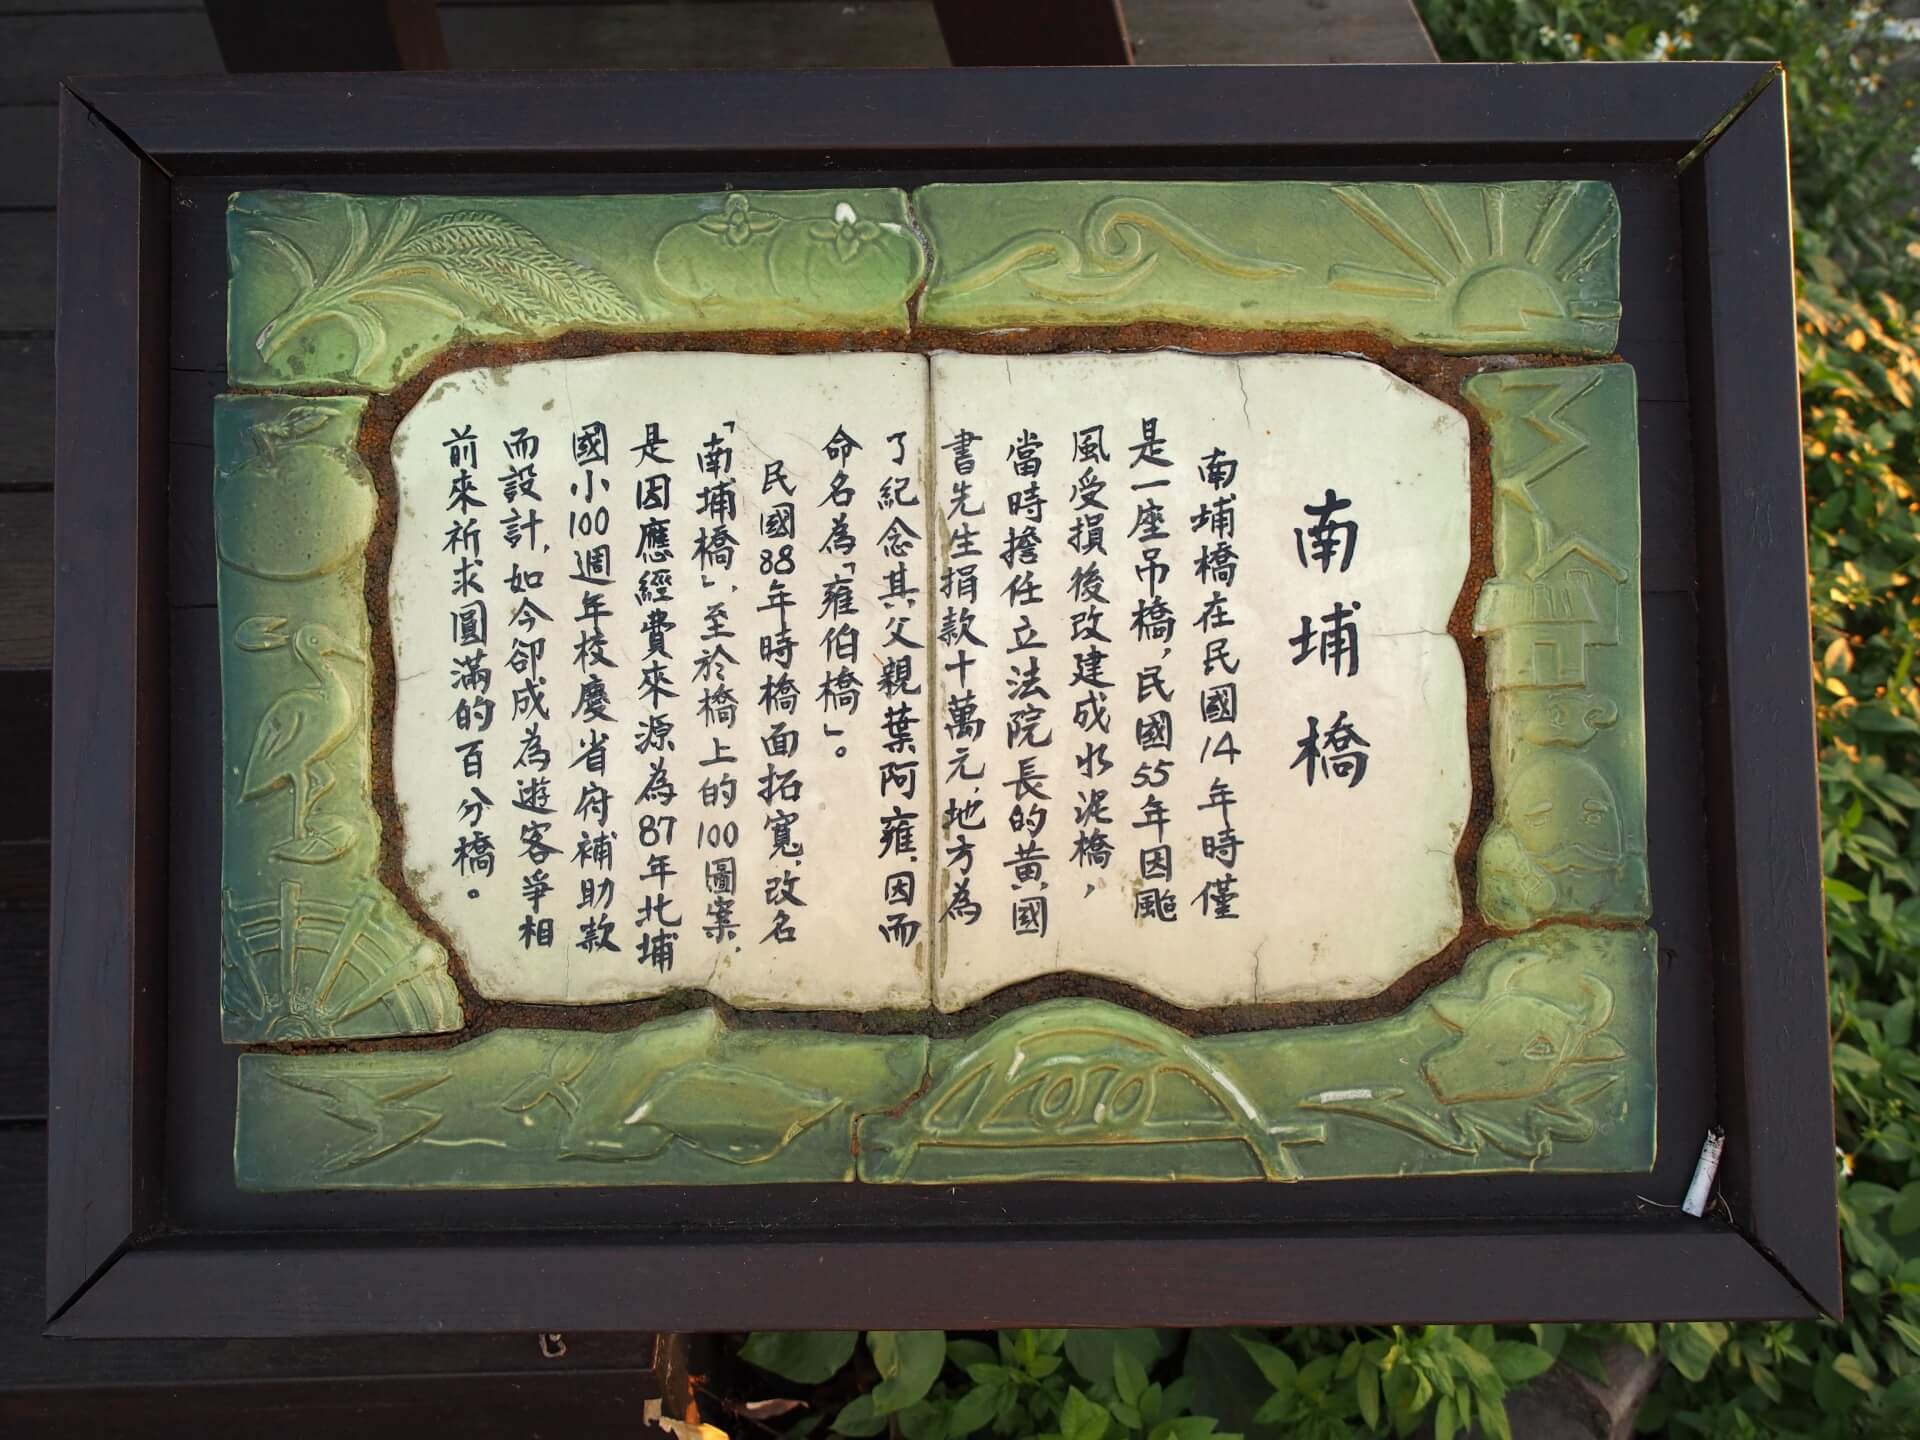 南埔橋
南埔橋在民國14年時僅
是一座吊橋，民國55年因颱
風受損後改建成水泥橋，
當時擔任立法院長的黃國
書先生捐款十萬元，地方為
了紀念其父親葉阿雍，因而
命名為「雍伯橋」。
民國88年時橋面拓寬，改名
「南埔橋」，至於橋上的100圖案，
是因應經費來源為87年北埔
國小100週年校慶省府補助款
而設計，如今卻成為遊客爭相
前來祈求圓滿的百分橋。
100